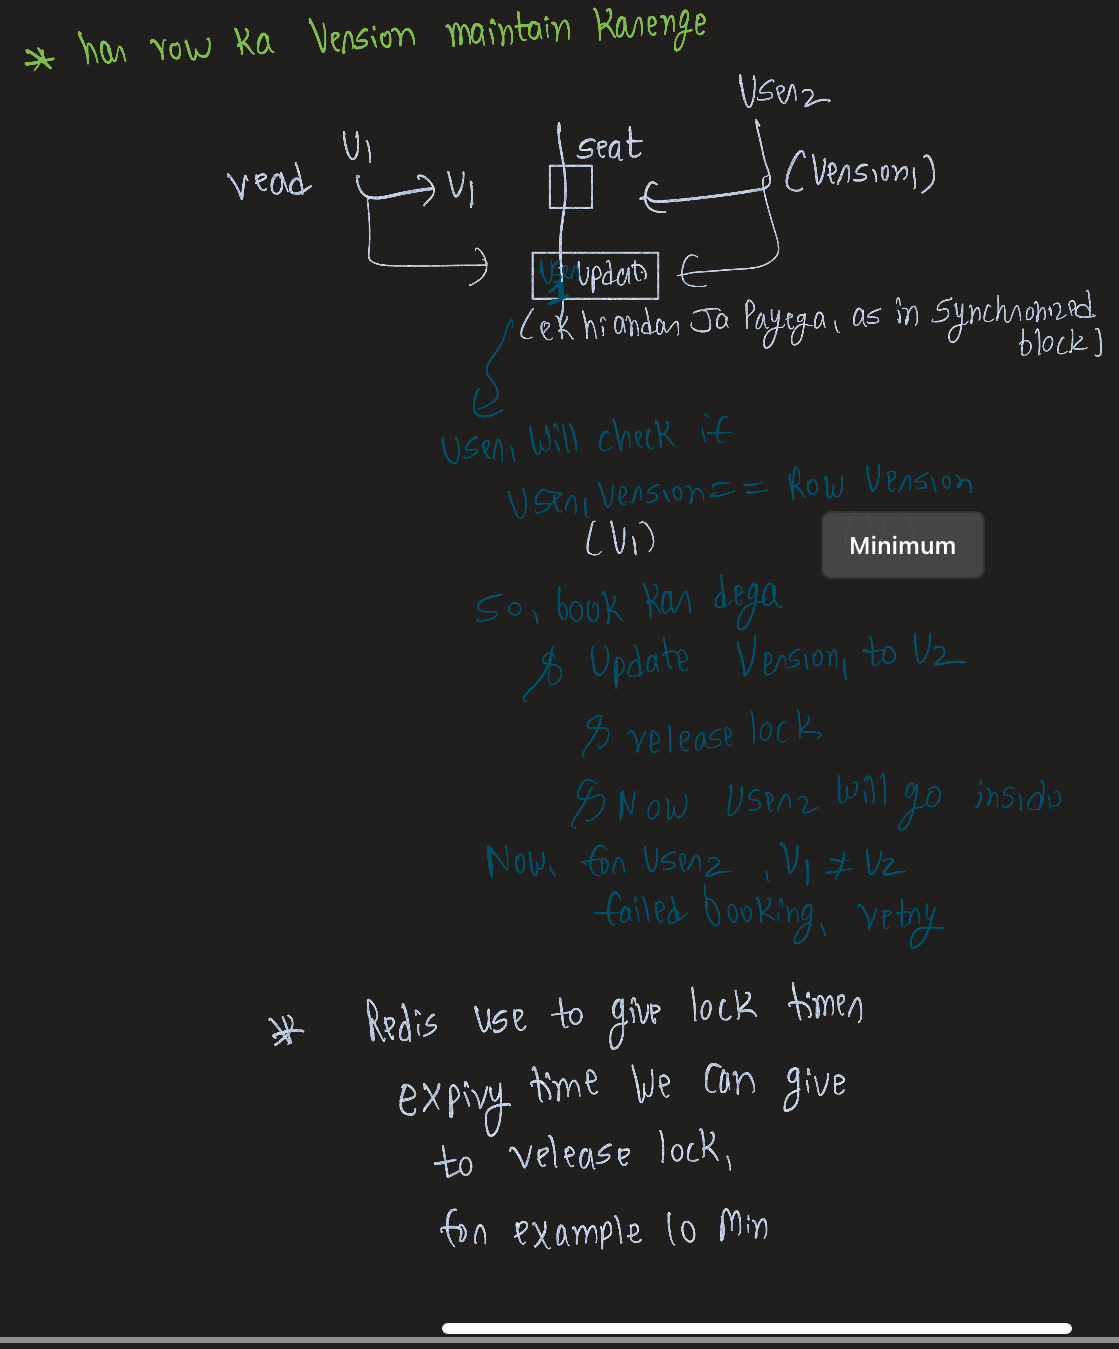 * har row ka Version maintain karenge
User2
U1
seat
read
V1
(Version1)
User1
update
(ek hi andar Ja Payega, as in Synchronized
block)
User1 will check if
User1 Version == Row Version
(V1)
Minimum
So, book kar dega
& Update Version1 to V2
& release lock
& Now User2 will go inside
Now, for User2, V1 ≠ V2
failed booking, retry
* Redis use to give lock timer
expiry time we can give
to release lock,
for example 10 Min